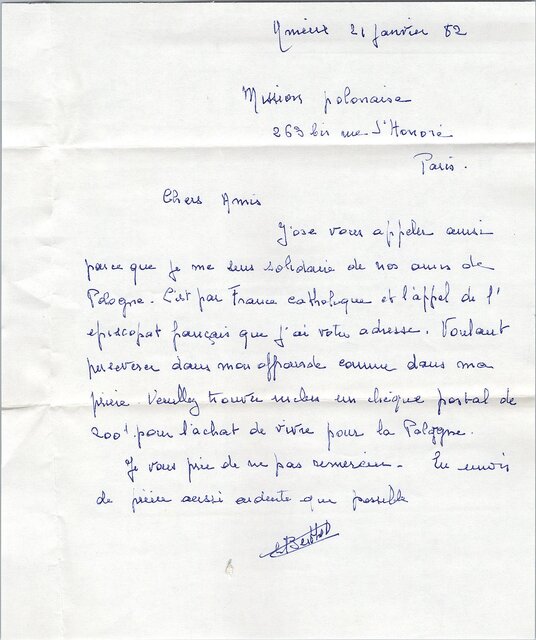 21 janvier 82
Mission polonaise
263 bis rue St Honoré
Paris.
Chers Amis
J'ose vous appeler ainsi
parce que je me sens solidaire de nos amis de
Pologne. C'est par France catholique et l'appel de l'
episcopat français que j'ai votre adresse. Voulant
perseverer dans mon offrande comme dans ma
prière. Veuillez trouver inclus un chèque postal de
200f pour l'achat de vivre pour la Pologne.
Je vous prie de ne pas remercier. En union
de prière aussi ardente que possible